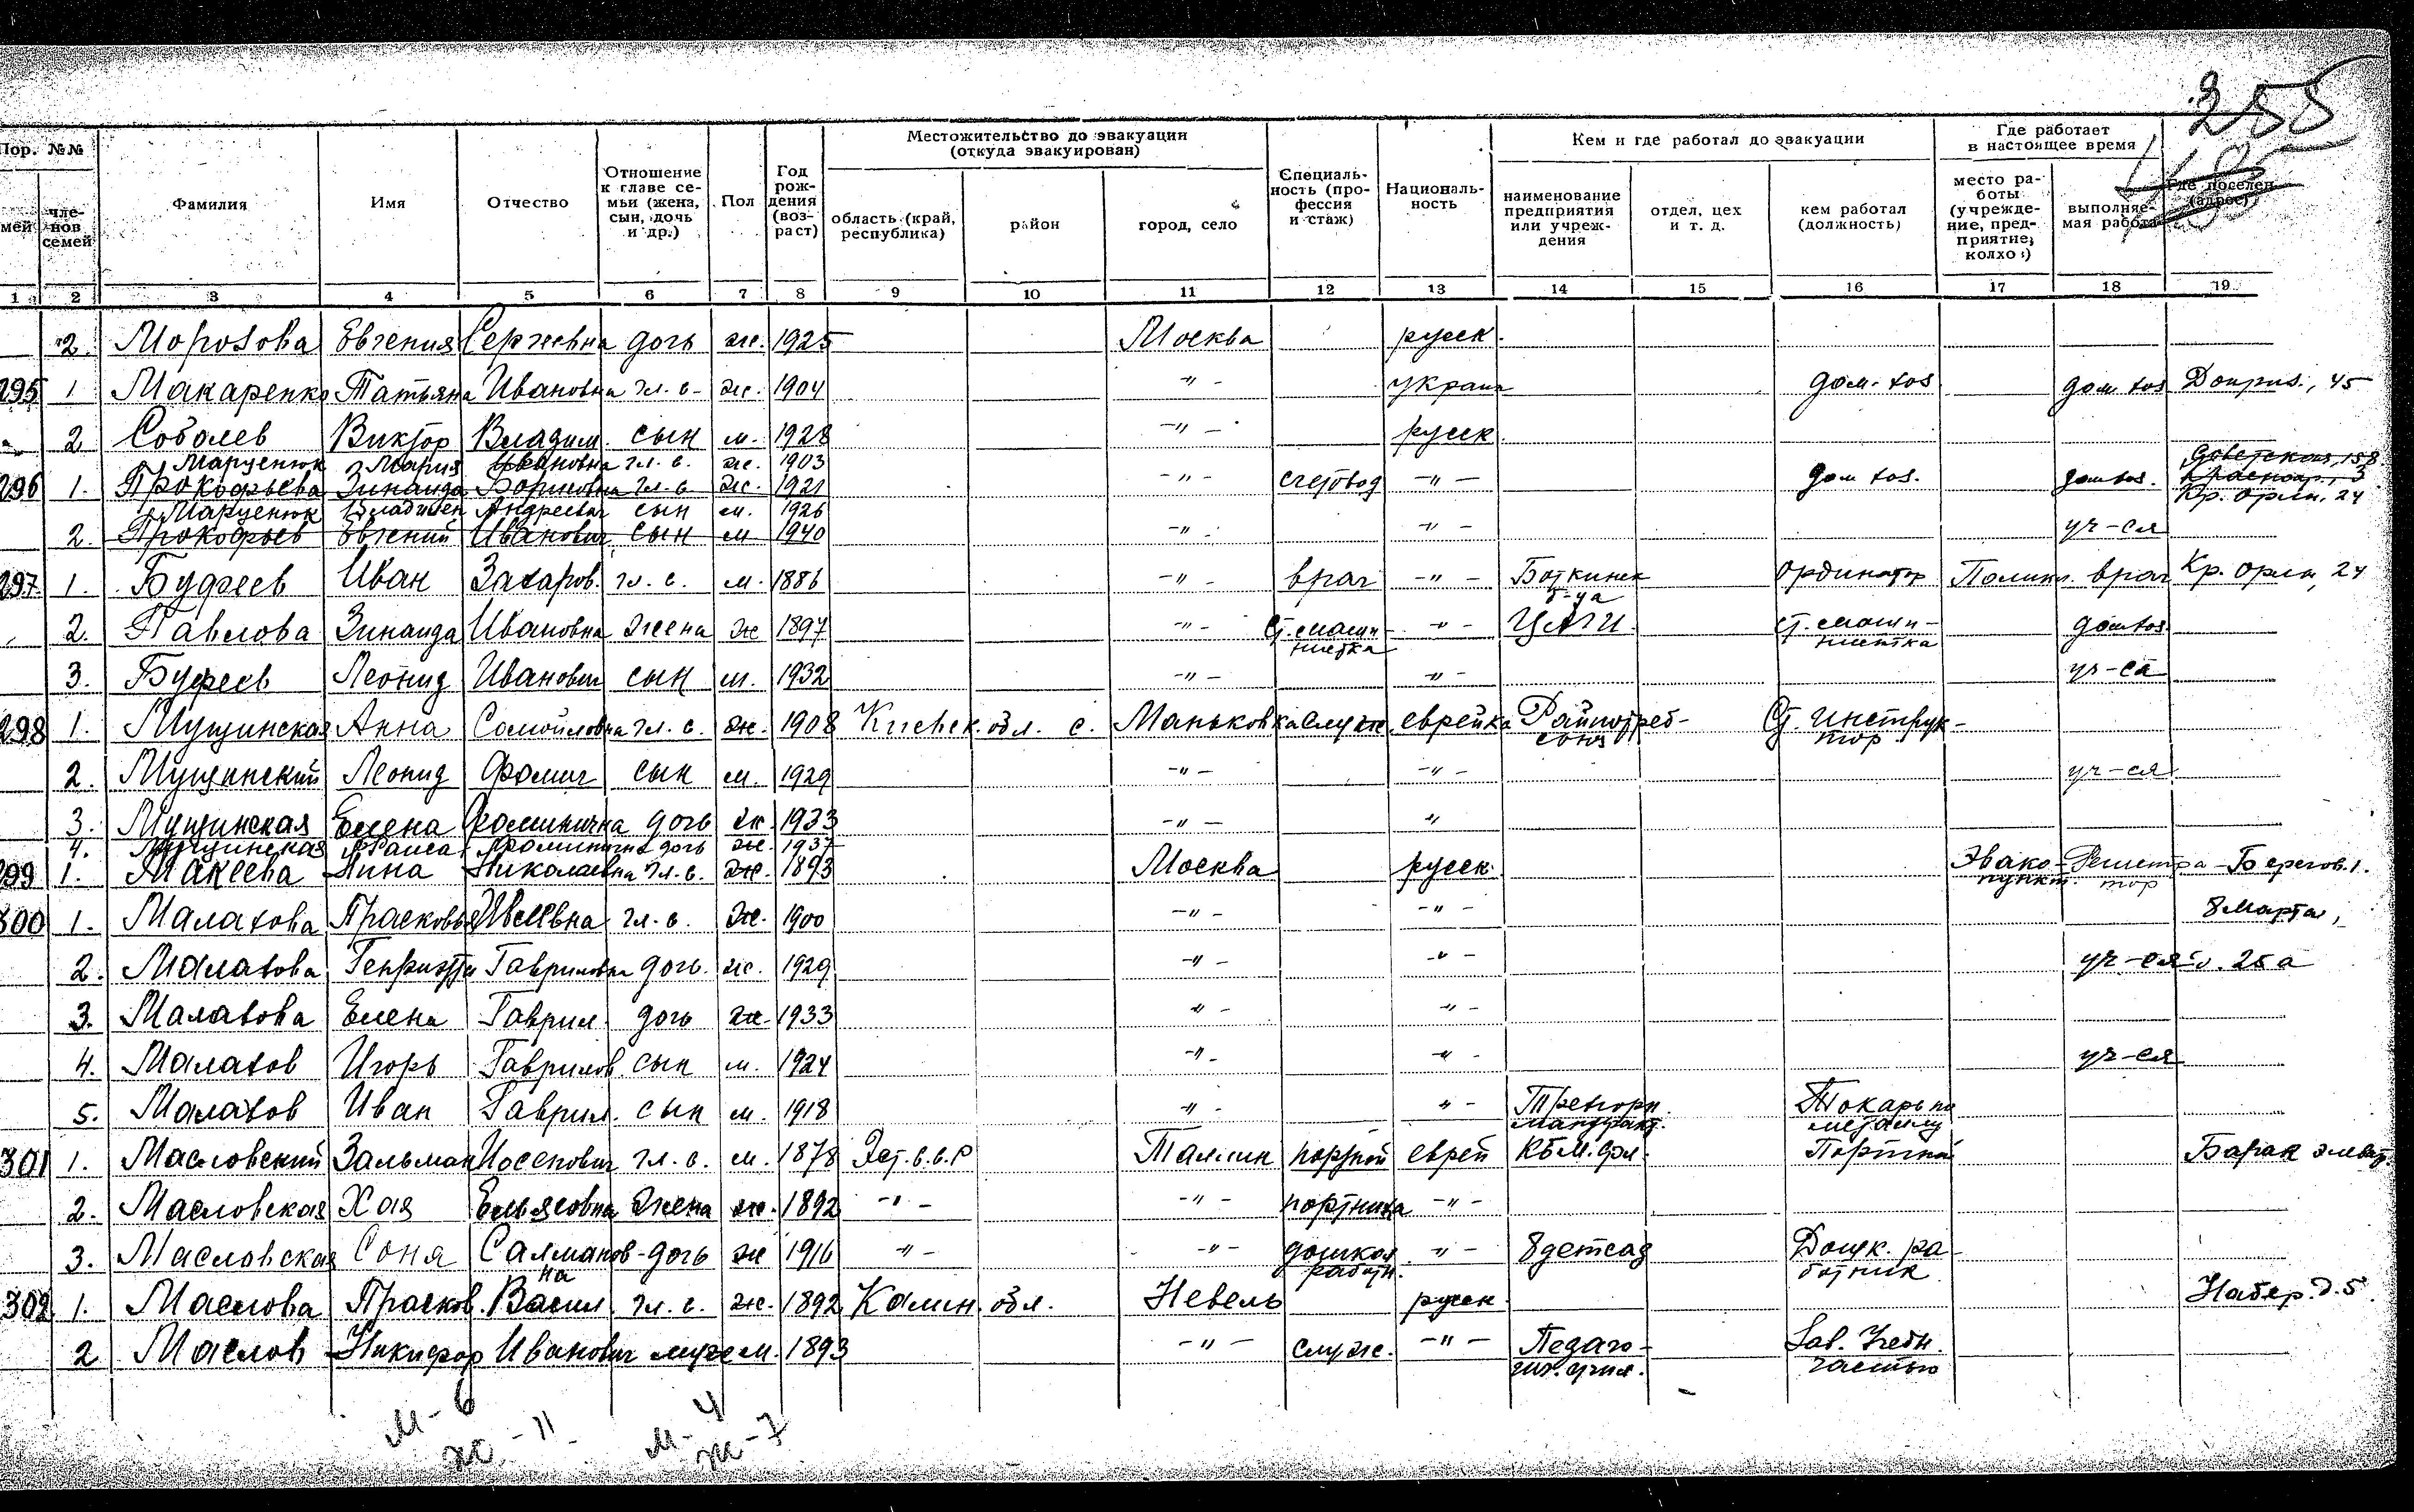 255
Пор. №№
Местожительство до эвакуации
(откуда эвакуирован)
Кем и где работал до эвакуации
Где работает
в настоящее время
мей
чле-
нов
семей
Фамилия
Имя
Отчество
Отношение
к главе се-
мьи (жена,
сын, дочь
и др.)
Пол
Год
рож-
дения
(воз-
раст)
область (край,
республика)
район
город, село
Специаль-
ность (про-
фессия
и стаж)
Националь-
ность
наименование
предприятия
или учреж-
дения
отдел, цех
и т. д.
кем работал
(должность)
место ра-
боты
(учрежде-
ние, пред-
приятие,
колхо:)
выполняе-
мая работа
Где поселен
(адрес)
1 2 3 4 5 6 7 8 9 10 11 12 13 14 15 16 17 18 19
2. Морозова Евгения Сергеевна дочь ж. 1925 Москва русск.
295 1 Макаренко Татьяна Ивановна гл. с. ж. 1904 -"- украин дом. хоз дом хоз 45
2 Соболев Виктор Владим. сын м. 1928 -"- русск
Марценюк Мария Ивановна гл. с. ж. 1903 Советская, 158
296 1. Прокофьева Зинаида Борисовна гл. с ж. 1921 -"- счетовод -"- дом хоз. дом хоз. Краснояр., 3
Марценюк Владилен Андреевич сын м. 1926 Кр. орли, 24
2. Прокофьев Евгений Иванович сын м 1940 -"- -"- уч-ся
297. 1. Буфеев Иван Захаров. гл. с. м. 1886 -"- врач -"- Боткинск ординатор Поликл. врач Кр. орли, 24
б-ца
2. Павлова Зинаида Ивановна жена ж 1897 -"- Ст. машин- -"- ЦАГИ ст. машин- дом хоз.
нистка нистка
3. Буфеев Леонид Иванович сын м. 1932 -"- -"- уч-ся
298 1. Мущинская Анна Самойловна гл. с. ж. 1908 Киевск. обл. с. Маньковка служ. еврейка Райпотреб- Ст. инструк-
союз тор
2. Мущинский Леонид Фомич сын м. 1929 -"- -"- уч-ся
3. Мущинская Елена Фоминична дочь ж 1933 -"- "
4. Мущинская Раиса Фоминична дочь ж. 1937
299 1. Макеева Нина Николаевна гл. с. ж. 1893 Москва русск. Эвако- Регистра- Берегов. 1.
пункт. тор
300 1. Малахова Прасковья гл. с. ж. 1900 -"- -"- 8 Марта,
2. Малахова Генриэтта Гавриловна дочь. ж. 1929 -"- -"- уч-ся д. 25 а
3. Малахова Елена Гаврил. дочь ж. 1933 -"- -"-
4. Малахов Игорь Гаврилов. сын м. 1924 -"- -"- уч-ся
5. Малахов Иван Гаврил. сын м. 1918 -"- -"- Трехгорн. Токарь по
мануфакт. металлу
301 1. Масловский Зальман Иосепович гл. с. м. 1878 Эст. с.с.р Таллин портной еврей Портной Барак элеват.
2. Масловская Хая Ельясовна жена ж. 1892 -"- -"- портниха -"-
3. Масловская Соня Салманов- дочь ж 1916 -"- -"- дошкол. -"- 8 детсад Дошк. ра-
на работн. ботник
302 1. Маслова Прасков. Васил. гл. с. ж. 1892 Калин. обл. Невель русск Набер. д. 5.
2 Маслов Никифор Иванович муж м. 1893 -"- служ. -"- Педаго- Зав. Учебн.
гич. учил. частью
м - 6
ж - 11
м - 4
ж - 7